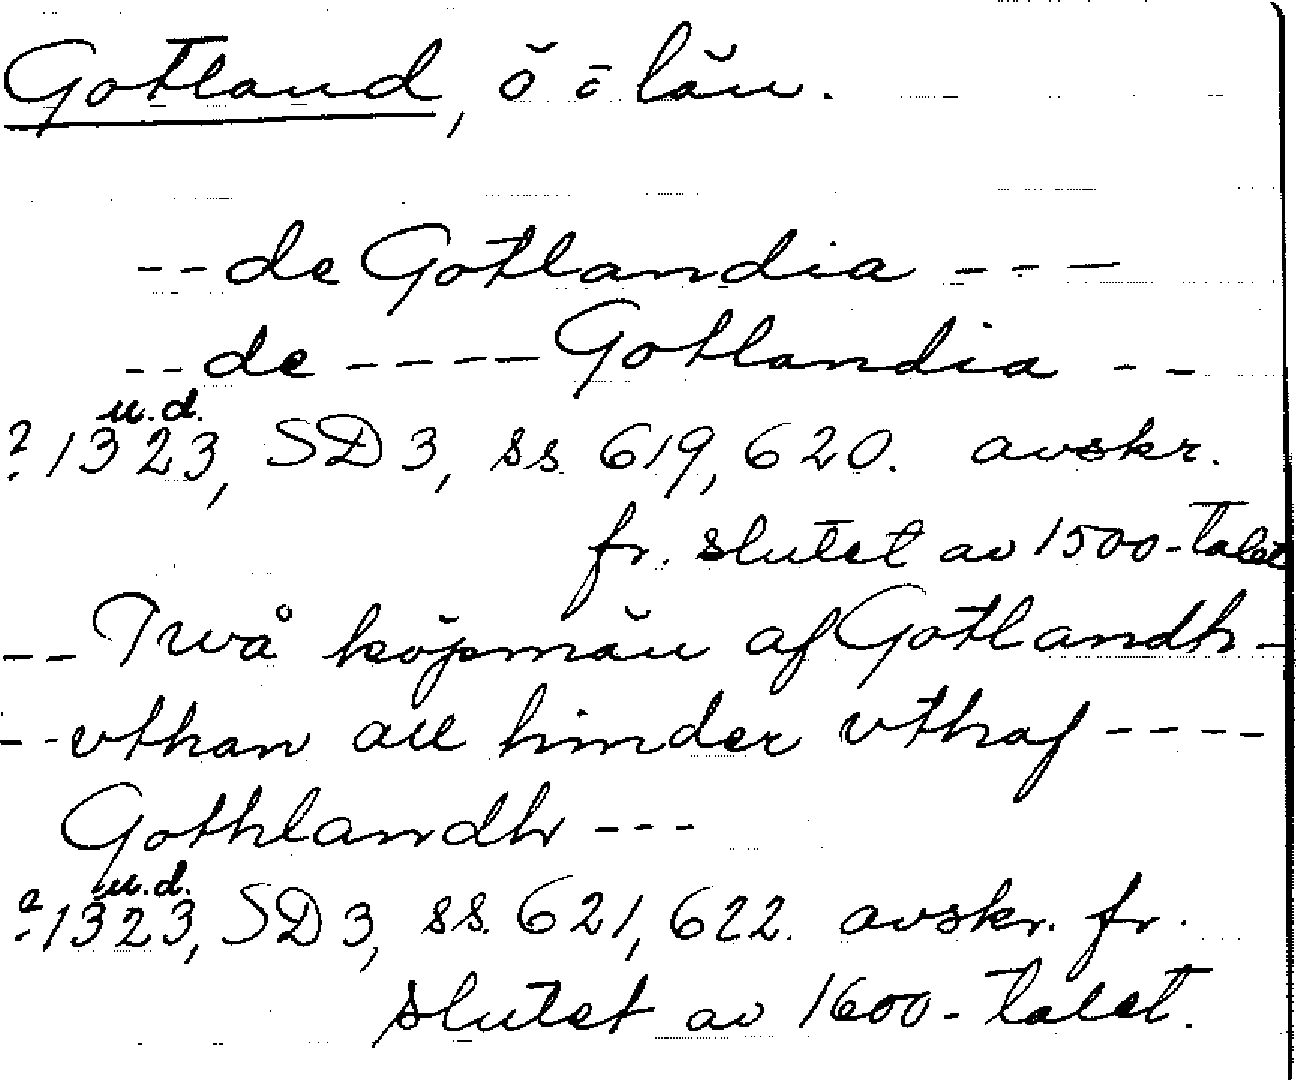 Gotland, ö = län.
-- de Gotlandia ---
-- de ---- Gotlandia --
u.d.
? 1323, SD 3, ss. 619, 620. avskr.
fr. slutet av 1500-talet
-- Twå köpmän af Gotlandh -
-- vthan all hinder vthaf ----
Gothlandh ---
u.d.
? 1323, SD 3, ss. 621, 622. avskr. fr.
slutet av 1600-talet.